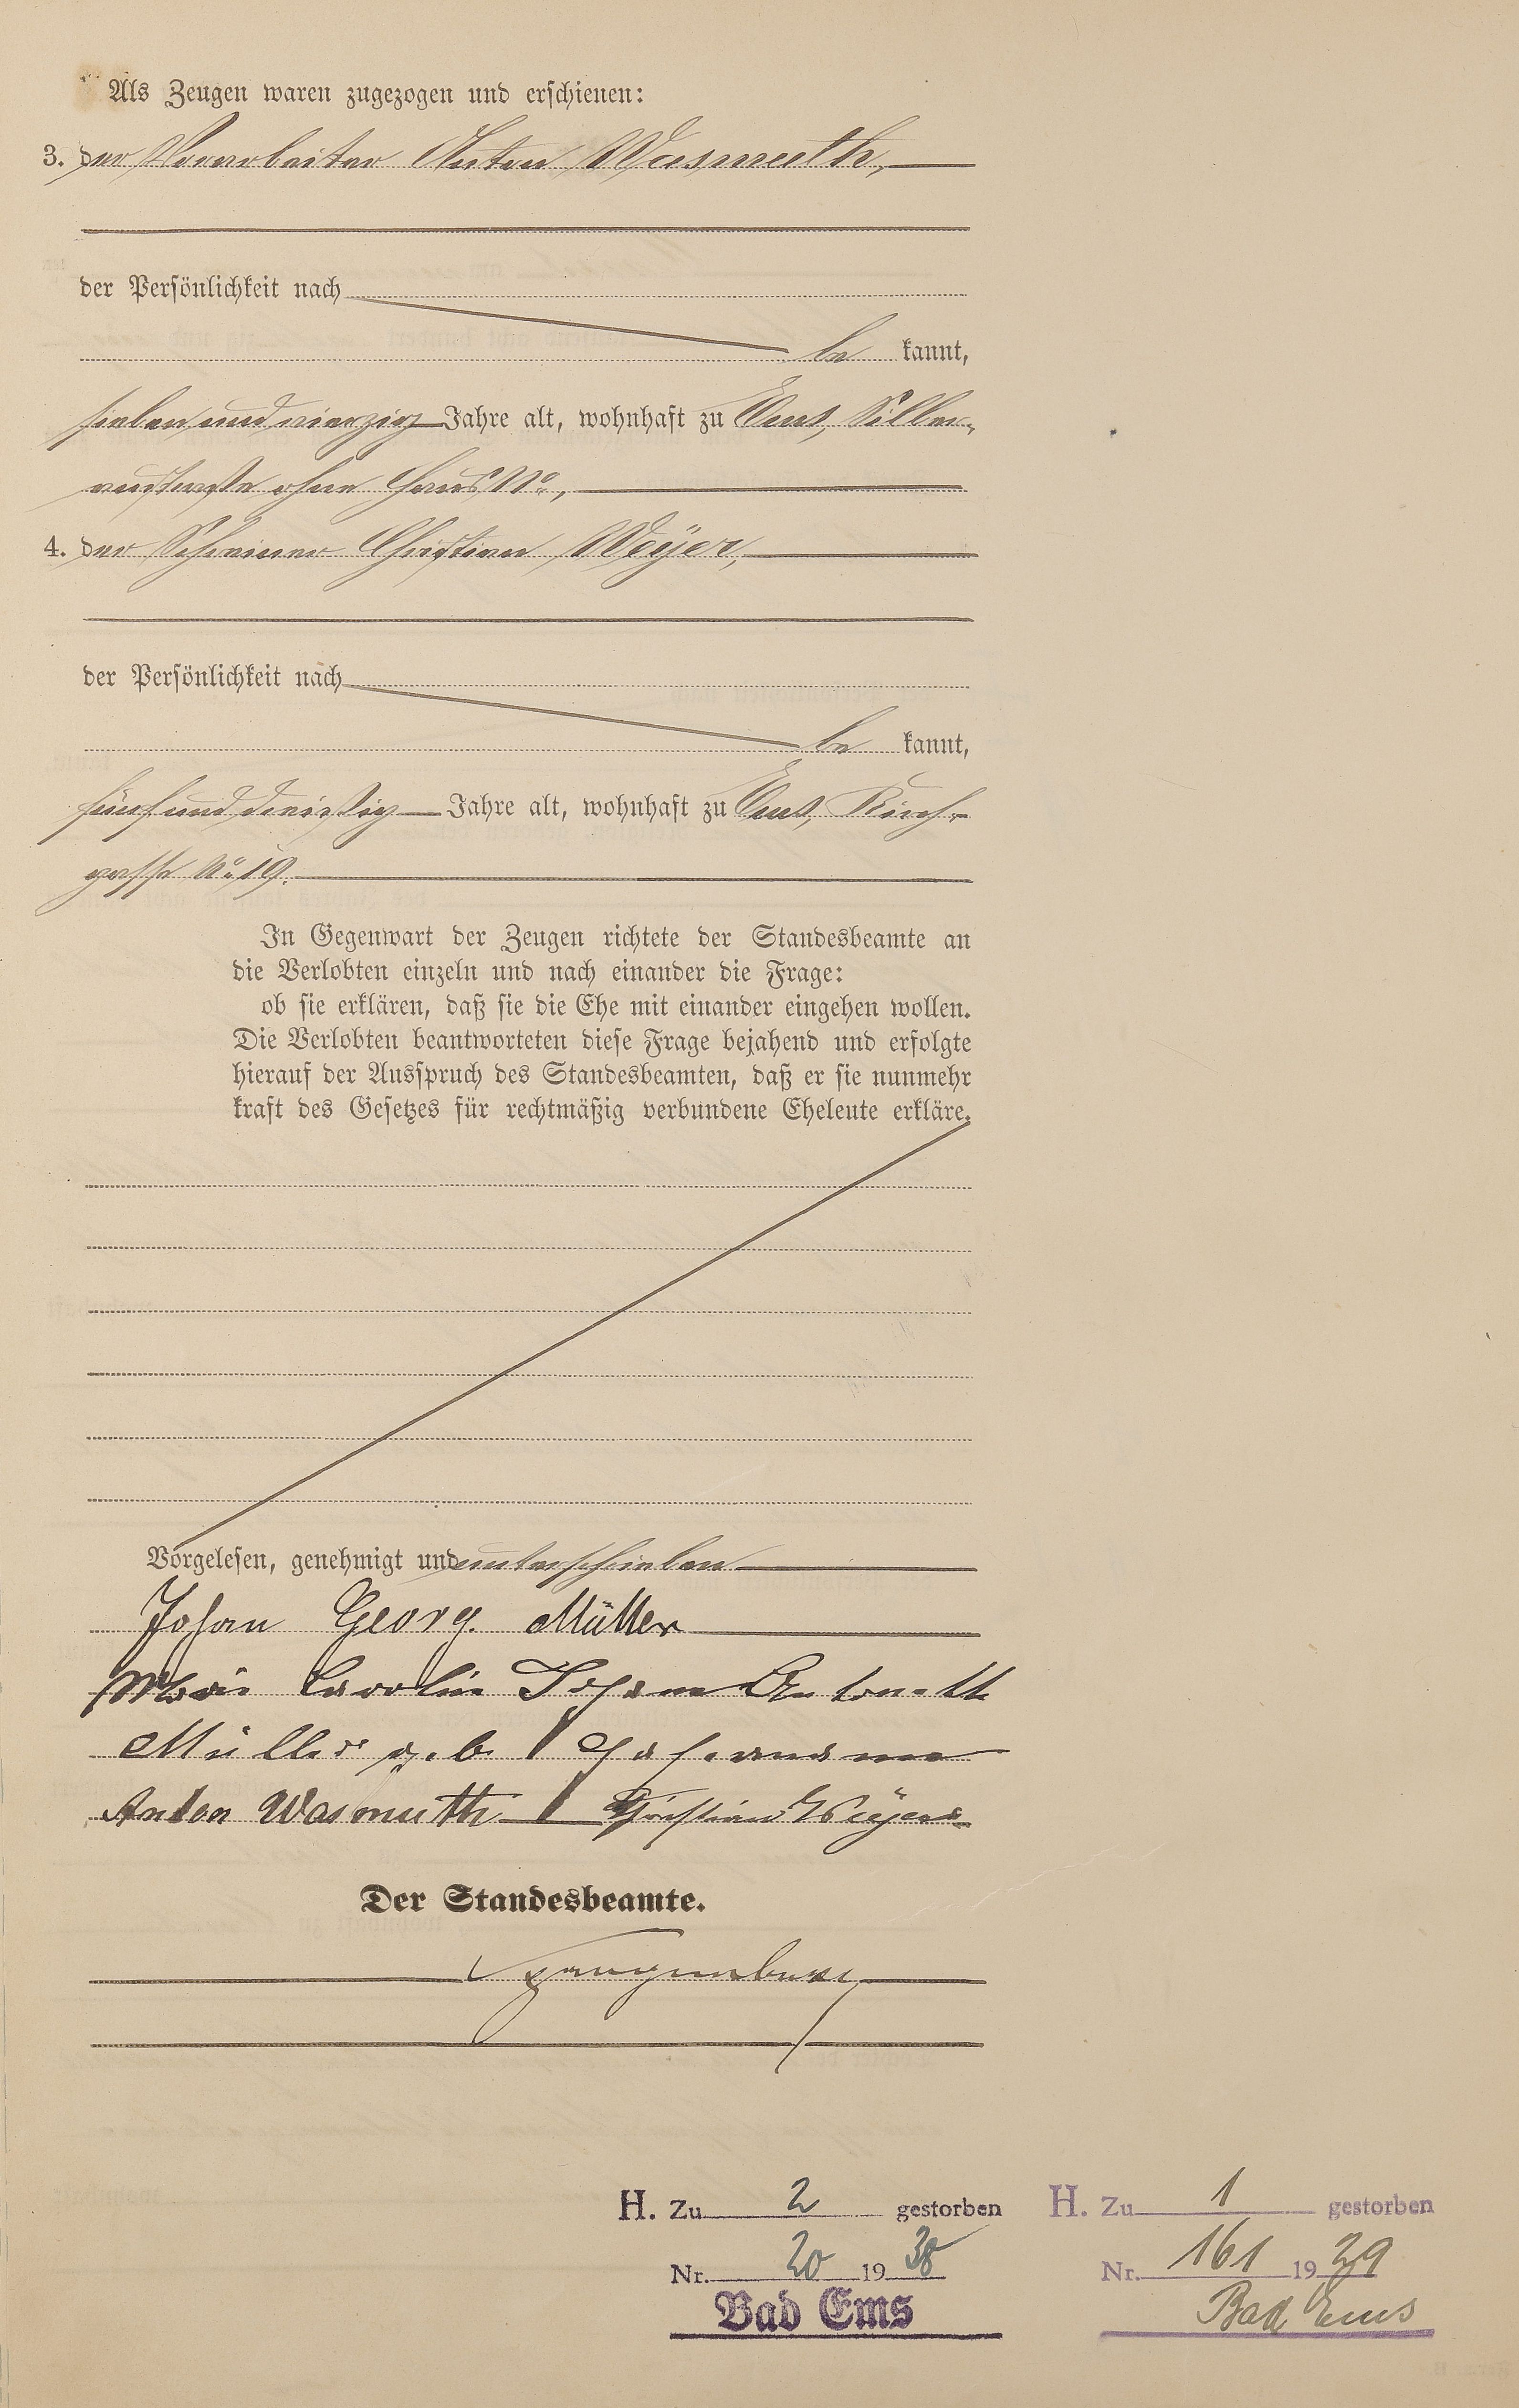 Als Zeugen waren zugezogen und erschienen:
3. der Vorarbeiter Anton Wasmuth,
der Persönlichkeit nach
be kannt,
sieben und vierzig Jahre alt, wohnhaft zu Ems, Silber-
austraße ohne Haus No.,
4. der Schreiner Christian Weyer,
der Persönlichkeit nach
be kannt,
fünf und dreißig Jahre alt, wohnhaft zu Ems, Kirch-
gasse No. 19.
In Gegenwart der Zeugen richtete der Standesbeamte an
die Verlobten einzeln und nach einander die Frage:
ob sie erklären, daß sie die Ehe mit einander eingehen wollen.
Die Verlobten beantworteten diese Frage bejahend und erfolgte
hierauf der Ausspruch des Standesbeamten, daß er sie nunmehr
kraft des Gesetzes für rechtmäßig verbundene Eheleute erkläre.
Vorgelesen, genehmigt und unterschrieben
Johan Georg. Müller
Marie Caroline Johane Antonette
Müller geb.
Anton Wasmuth Christian Weyer
Der Standesbeamte.
Spangenberg
H. Zu 2 gestorben
Nr. 20 1938
Bad Ems
H. Zu 1 gestorben
Nr. 161 1929
Bad Ems